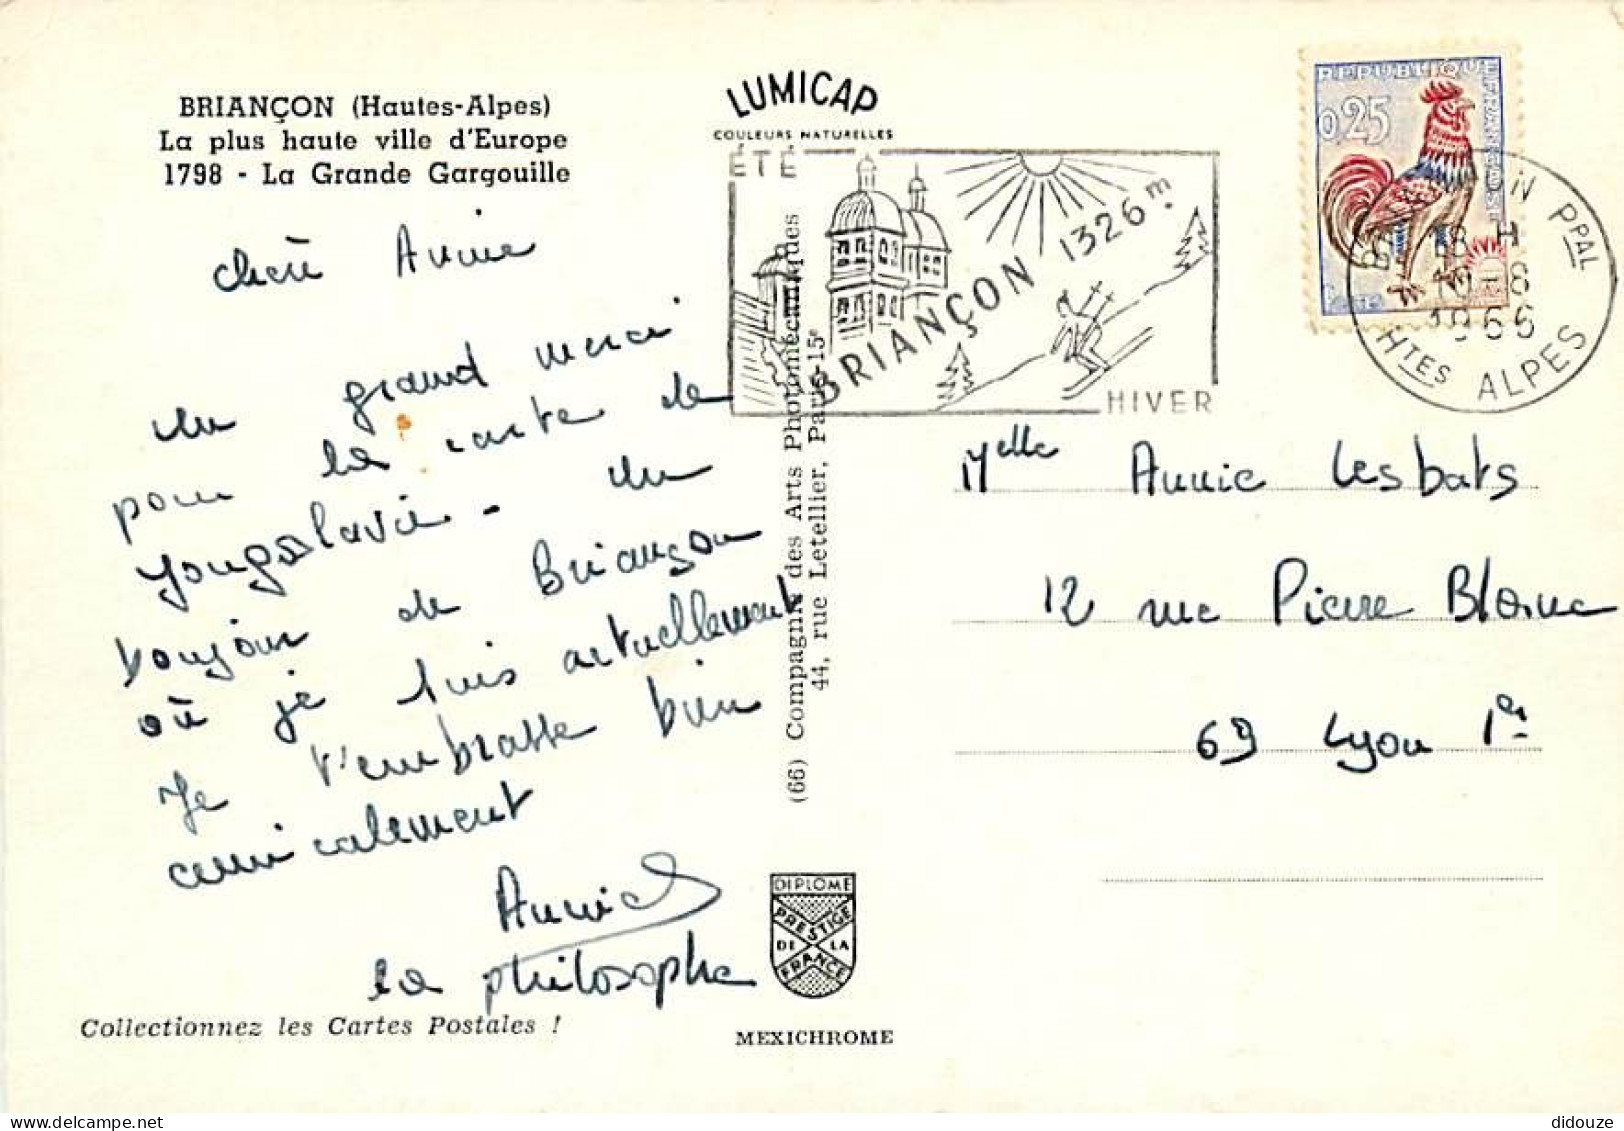 BRIANÇON (Hautes-Alpes)
La plus haute ville d'Europe
1798 - La Grande Gargouille
chère Annie
Un grand merci
pour ta carte de
Yougoslavie - Un
bonjour de Briançon
où je suis actuellement
Je t'embrasse bien
amicalement
Annick
la philosophe
Collectionnez les Cartes Postales !
LUMICAP
COULEURS NATURELLES
ÉTÉ
BRIANÇON 1326m
HIVER
(66) Compagnie des Arts Photomécaniques
44, rue Letellier, Paris-15e
DIPLOME
PRESTIGE
DE LA
FRANCE
MEXICHROME
REPUBLIQUE FRANÇAISE
0,25
BRIANÇON PPAL
18 H
10-8
1966
HTES ALPES
Melle Annie Lesbats
12 rue Pierre Blanc
69 Lyon 1er
delcampe.net
didouze